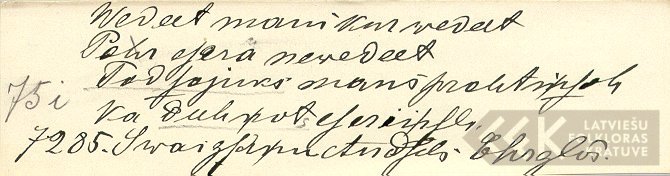 Wedeet mani kur wedeet
Pahr esera newedeet
Tad sajuks mans prahtinsch
75i
Ka duhņots eserinsch.
7285. Swaigsņu Andsels. Ehrglos.
LATVIEŠU
FOLKLORAS
KRĀTUVE